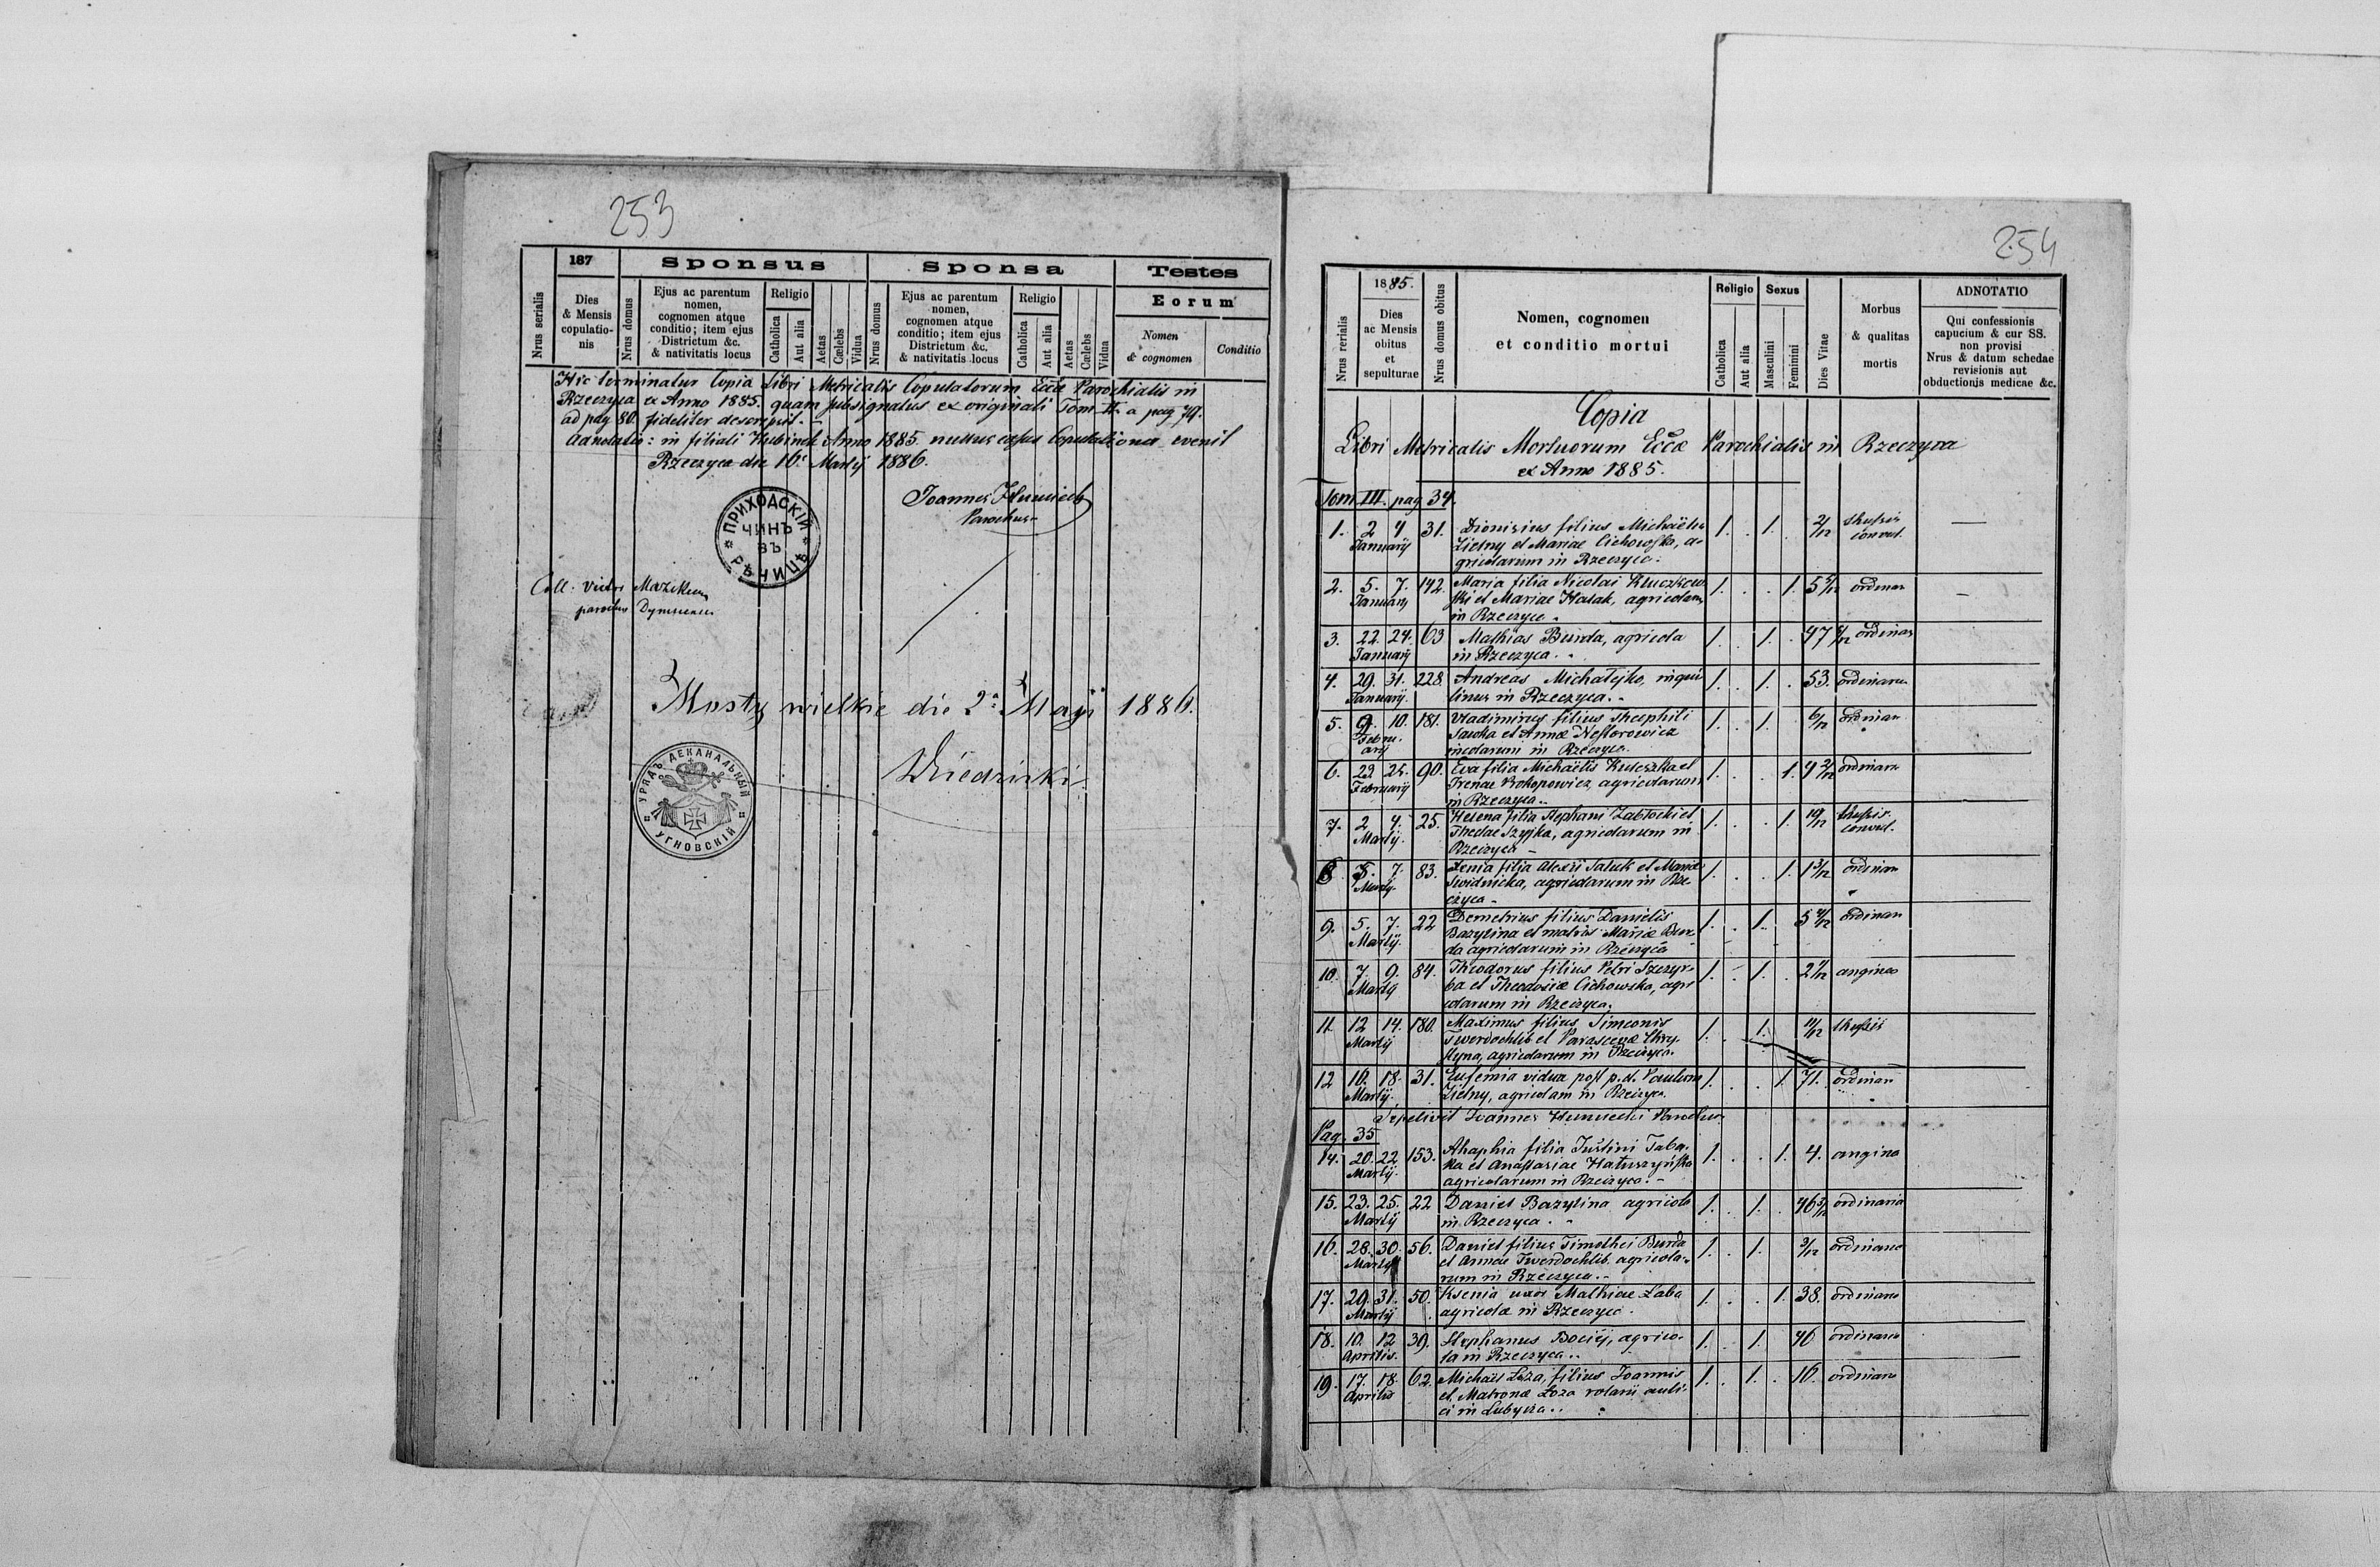 253
187
Sponsus
Sponsa
Testes
Nrus serialis
Dies
& Mensis
copulatio-
nis
Nrus domus
Ejus ac parentum
nomen,
cognomen atque
conditio; item ejus
Districtum &c.
& nativitatis locus
Religio
Catholica
Aut alia
Aetas
Cœlebs
Vidua
Nrus domus
Ejus ac parentum
nomen,
cognomen atque
conditio; item ejus
Districtum &c.
& nativitatis locus
Religio
Catholica
Aut alia
Aetas
Cœlebs
Vidua
Eorum
Nomen
& cognomen
Conditio
Hic terminatur Copia Libri Metricalis Copulatorum Eccæ Parochialis in
Rzeczyca ex Anno 1885. quam subsignatus ex originali Tom. II. a pag 79.
ad pag 80. fideliter descripsit.
Adnotatio: in filiali Hubinek Anno 1885 nullus casus Copulationis evenit
Rzeczyca die 16. Martij 1886.
Joannes
Parochus
ПРИХОДСКІЙ
ЧИНЪ
ВЪ
РѢЧИЦѢ
Coll: Victor
parochus
Mosty wielkie die 2ª Maji 1886.
УРЯДЪ ДЕКАНАЛЬНЫЙ
УГНОВСКІЙ
254
1885.
Nrus rerialis
Dies
ac Mensis
obitus
et
sepulturae
Nrus domus obitus
Nomen, cognomen
et conditio mortui
Religio
Sexus
Catholica
Aut alia
Masculini
Feminini
Dies Vitae
Morbus
& qualitas
mortis
ADNOTATIO
Qui confessionis
capucium & cur SS.
non provisi
Nrus & datum schedae
revisionis aut
obductionis medicae &c.
Copia
Libri Metricalis Mortuorum Eccæ Parochialis in Rzeczyca
ex Anno 1885.
Tom III. pag 34.
1. 2 4 31. Dionisius filius Michaëlis 1. . 1. 2/12 thussis
Januarij Zielny et Mariae Cichowska, a- convul.
gricolarum in Rzeczyca.
2. 5. 7. 142. Maria filia Nicolai Kluczkow- 1. . . 1. 5 5/12 ordinar
Januarij ski et Mariae Hatak, agricolarum
in Rzeczyca
3. 22. 24. 63 Mathias Burda, agricola 1. . 1. . 47 ordinar
Januarij in Rzeczyca.
4. 29. 31. 228. Andreas Michalejko, inqui- 1. . 1. . 53. ordinaria
Januarij. linus in Rzeczyca.
5. 9. 10. 181. Vladimirus filius Theophili 1. . 1. 6/12 ordinar
Febru- Sawka et Annæ Nestorowicz
arij incolarum in Rzeczyca.
6. 23 25. 90. Eva filia Michaëlis Kuleszka et 1. . . 1. 4 2/12 ordinaria
Februarij Irenae Prokopowicz, agricolarum
in Rzeczyca.
7. 2 4. 25. Helena filia Stephani Zabłocki et 1. . . 1. 10/12 thussis.
Martij. Theclae Szyjka, agricolarum in convul.
Rzeczyca
8 5. 7. 83. Xenia filia Alexii Saluk et Mariæ 1. . . 1. 1 3/12 ordinar
Martij. Swidnicka, agricolarum in Rze-
czyca
9. 5. 7. 22 Demetrius filius Danielis 1. . 1. 5 ordinar
Martij. Bazylina et matris Mariæ Bur-
da agricolarum in Rzeczyca
10. 7. 9. 84. Theodorus filius Petri Szczyr- 1. . 1. . 2 anginæ
Martij ba et Theodosiæ Cichowska, agri-
colarum in Rzeczyca.
11 12 14. 180. Maximus filius Simeonis 1. . 1. 11/12 thussis
Martij Twerdochlib et Parascevæ
agricolarum in Rzeczyca.
12 16. 18. 31. Eufemia vidua post p.d. Paulum 1. . . 1. 71. ordinar
Martij. Zielny, agricolam in Rzeczyca.
Sepelivit Joannes Parochus
Pag. 35
14. 20. 22 153. Ahaphia filia Justini Taba- 1. . . 1. 4. angina
Martij. ka et Anastasiae Hałuszyńska
agricolarum in Rzeczyca.
15. 23. 25. 22 Daniel Bazylina agricola 1. . 1. . 46 3/12 ordinaria
Martij in Rzeczyca.
16. 28. 30. 56. Daniel filius Timothei Burda 1. . 1. 3/12 ordinaria
Martij et Annae Twerdochlib. agricola-
rum in Rzeczyca.
17. 29. 31. 50. Ksenia uxor Mathiae Łaba 1. . . 1. 38. ordinaria
Martij agricolæ in Rzeczyca.
18. 10. 12 39. Stephanus Bocij, agrico- 1. . 1. 46 ordinaria
Aprilis. la in Rzeczyca.
19. 17. 18. 62. Michaël Łoza, filius Joannis 1. . 1. . 16. ordinaria
Aprilis et Matronæ Łoza rotarii auli-
ci in Lubycza.